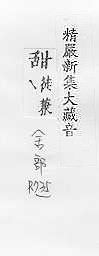 精嚴新集大藏音
甜徒兼
(舌部